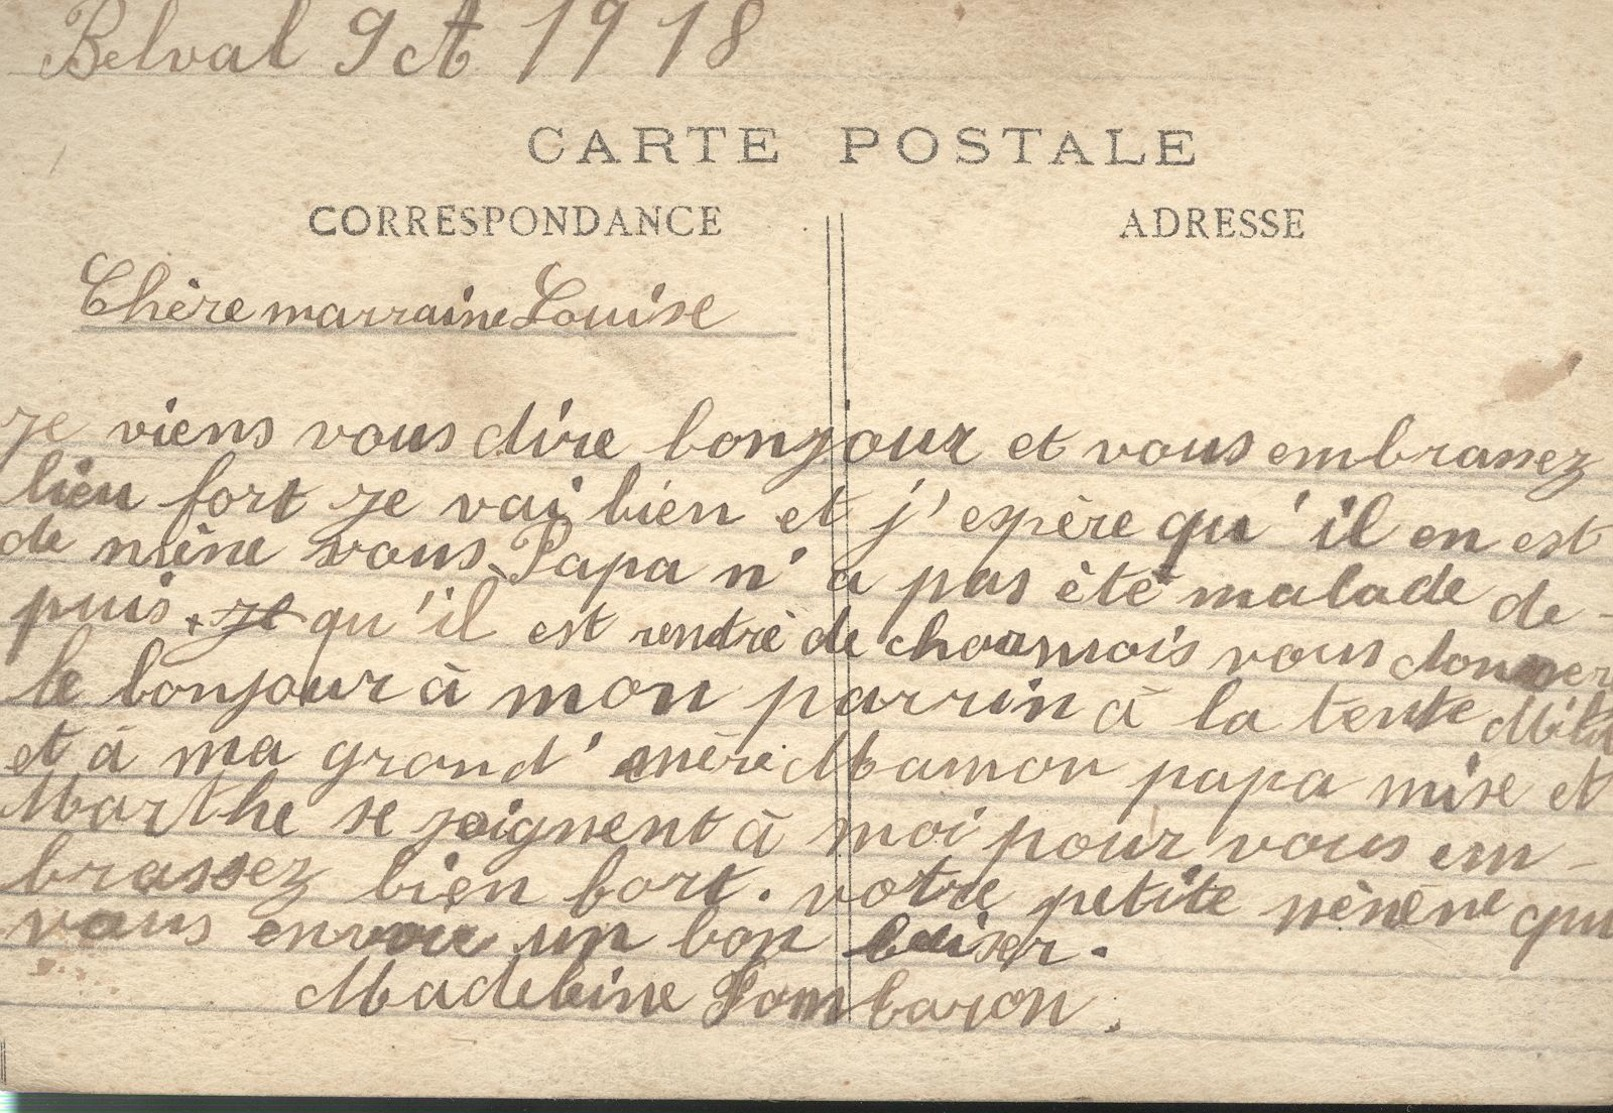 Belval 9 ct 1918
CARTE POSTALE
CORRESPONDANCE
ADRESSE
Chère marraine Louise
Je viens vous dire bonjour et vous embrassez
bien fort je vai bien et j' espère qu' il en est
de même vous Papa n' a pas été malade de-
puis je qu'il est rentré de charmois vous donner
le bonjour à mon parrin à la tente
et à ma grand' mère Maman papa mise et
Marthe se joignent à moi pour vous em-
brassez bien fort. votre petite nènène qui
vous envoie un bon baiser.
Madeleine Lombaron.